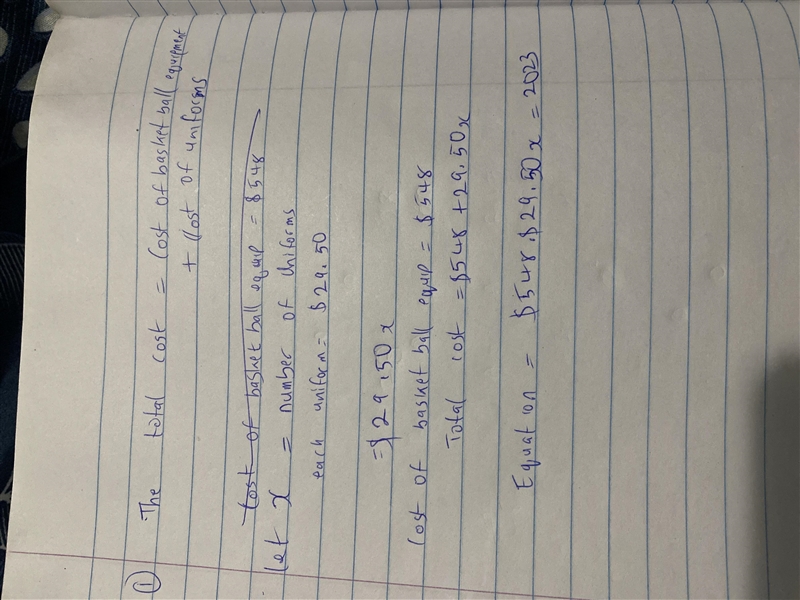 ① The total cost = Cost of basket ball equipment
+ Cost of uniforms
Cost of basket ball equip = $548
let x = number of Uniforms
each uniform = $29.50
= $29.50x
Cost of basket ball equip = $548
Total cost = $548 + 29.50x
Equation = $548.$29.50x = 2023